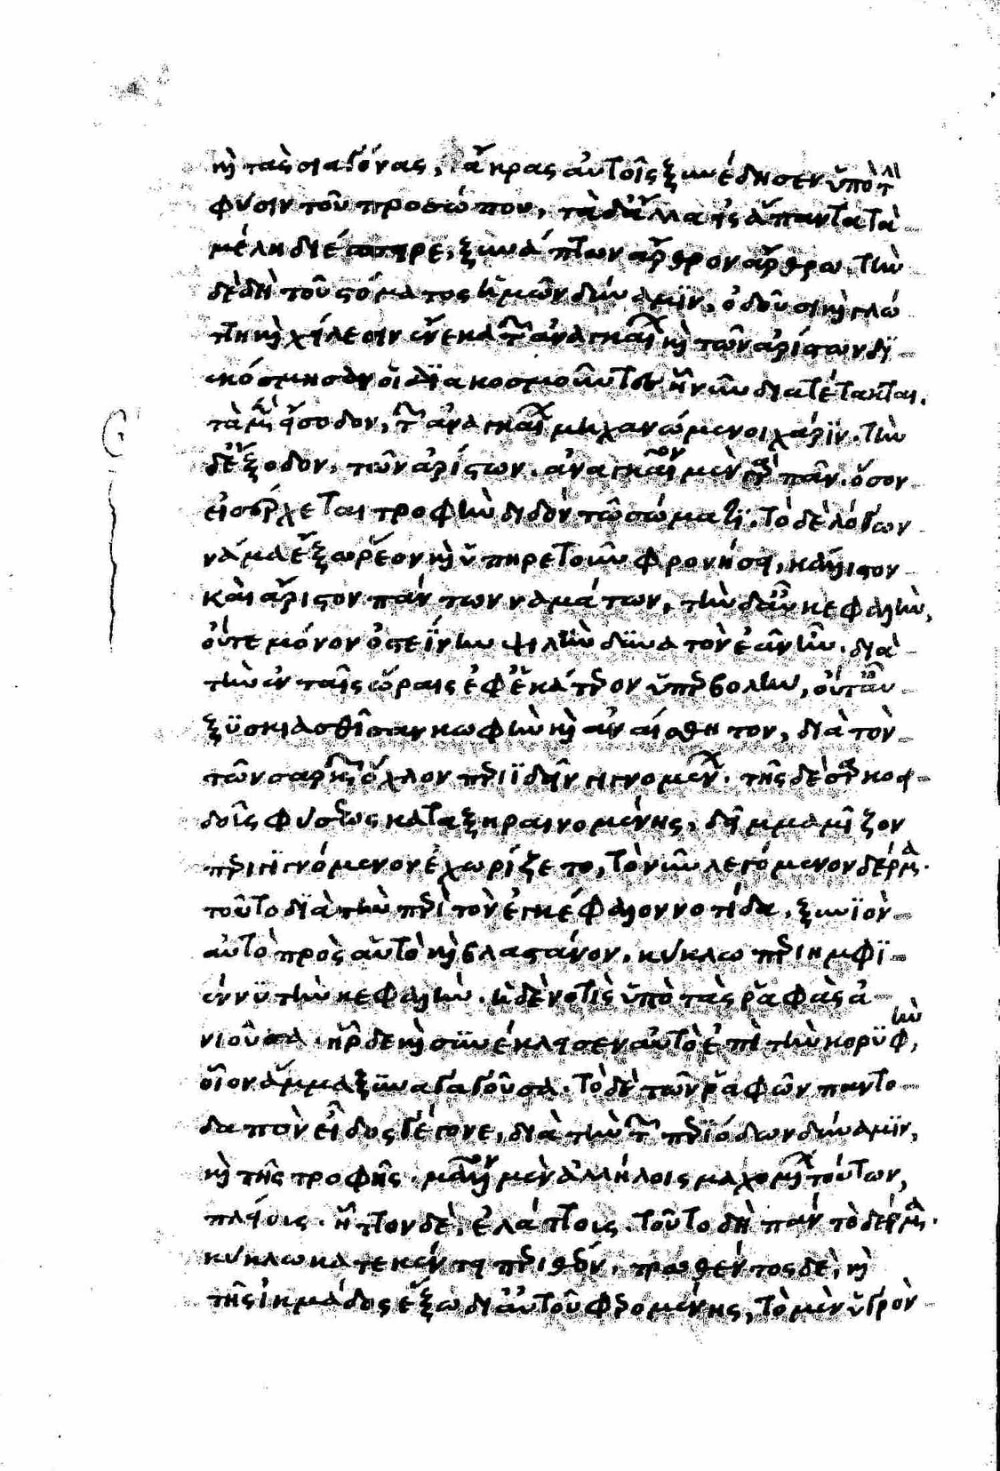 κὴ τὰς σιαγόνας, ἄκρας αὐτοῖς ξυνέδησεν ὑπὸ τὴν
φύσιν τοῦ προσώπου, τὰ δ' ἄλλα εἰς ἅπαντα τὰ
μέλη διέσπειρε, ξυνάπτων ἄρθρον ἄρθρω. τὴν
δὲ δὴ τοῦ στόματος ἡμῶν δύναμϊν, ὀδοῦσι κὴ γλώ
ττη κὴ χείλεσιν ἕνεκα τῶν ἀναγκαίων κὴ τῶν ἀρίστων δϊ
εκόσμησαν οἱ δϊακοσμοῦντες ἧ νῦν διατέτακται.
τὴν μὲν εἴσοδον, τῶν ἀναγκαίων μηχανώμενοι χάρϊν. τὴν
δ' ἔξοδον, τῶν ἀρίστων. ἀναγκαῖον μὲν γὰρ πᾶν. ὅσον
εἰσέρχεται τροφὴν διδὸν τῶ σώματϊ. τὸ δὲ λόγων
νάμα ἔξω ρέον κὴ ὑπηρετοῦν φρονήσει, κάλλιστον
καὶ ἄριστον πάντων ναμάτων, τὴν δ' αὖ κεφαλὴν,
οὔτε μόνον ὀστεΐνην ψιλὴν δϋνατὸν ἐᾶν ἦν. διὰ
τὴν ἐν ταῖς ὥραις ἐφ' ἑκάτερον ὑπερβολὴν, οὔτ' αὖ
ξϋσκιασθεῖσαν κωφὴν κὴ ἀναίσθητον, διὰ τὸν
τῶν σαρκῶν ὄχλον περιϊδεῖν γιγνομένην. τῆς δὲ σαρκοει
δοῦς φύσεως καταξηραινομένης, λέμμα μεῖζον
περιγϊγνόμενον ἐχωρίζετο, τὸ νῦν λεγόμενον δέρμα.
τοῦτο διὰ τὴν περὶ τὸν ἐγκέφαλον νοτίδα, ξυνϊὸν
αὐτὸ πρὸς αὑτὸ κὴ βλαστάνον. κύκλω περιημφϊ
έννϋ τὴν κεφαλήν. ἡ δὲ νοτὶς ὑπὸ τὰς ῥαφὰς ἀ
νιοῦσα ἦρδε κὴ σϋνέκλεισεν αὐτὸ ἐπὶ τὴν κορϋφὴν,
οἷον ἅμμα ξϋναγαγοῦσα. τὸ δὲ τῶν ῥαφῶν παντο
δαπὸν εἶδος γέγονε, διὰ τὴν τῶν περϊόδων δύναμϊν,
κὴ τῆς τροφῆς. μᾶλλον μὲν ἀλλήλοις μαχομένων τούτων,
πλείους. ἧττον δὲ, ἐλάττους. τοῦτο δὴ πᾶν τὸ δέρμα.
κύκλω κατεκέντει πυρὶ θεῖον. τρωθέντος δὲ, κὴ
τῆς ἰκμάδος ἔξω δι' αὐτοῦ φερομένης, τὸ μὲν ὑγρὸν